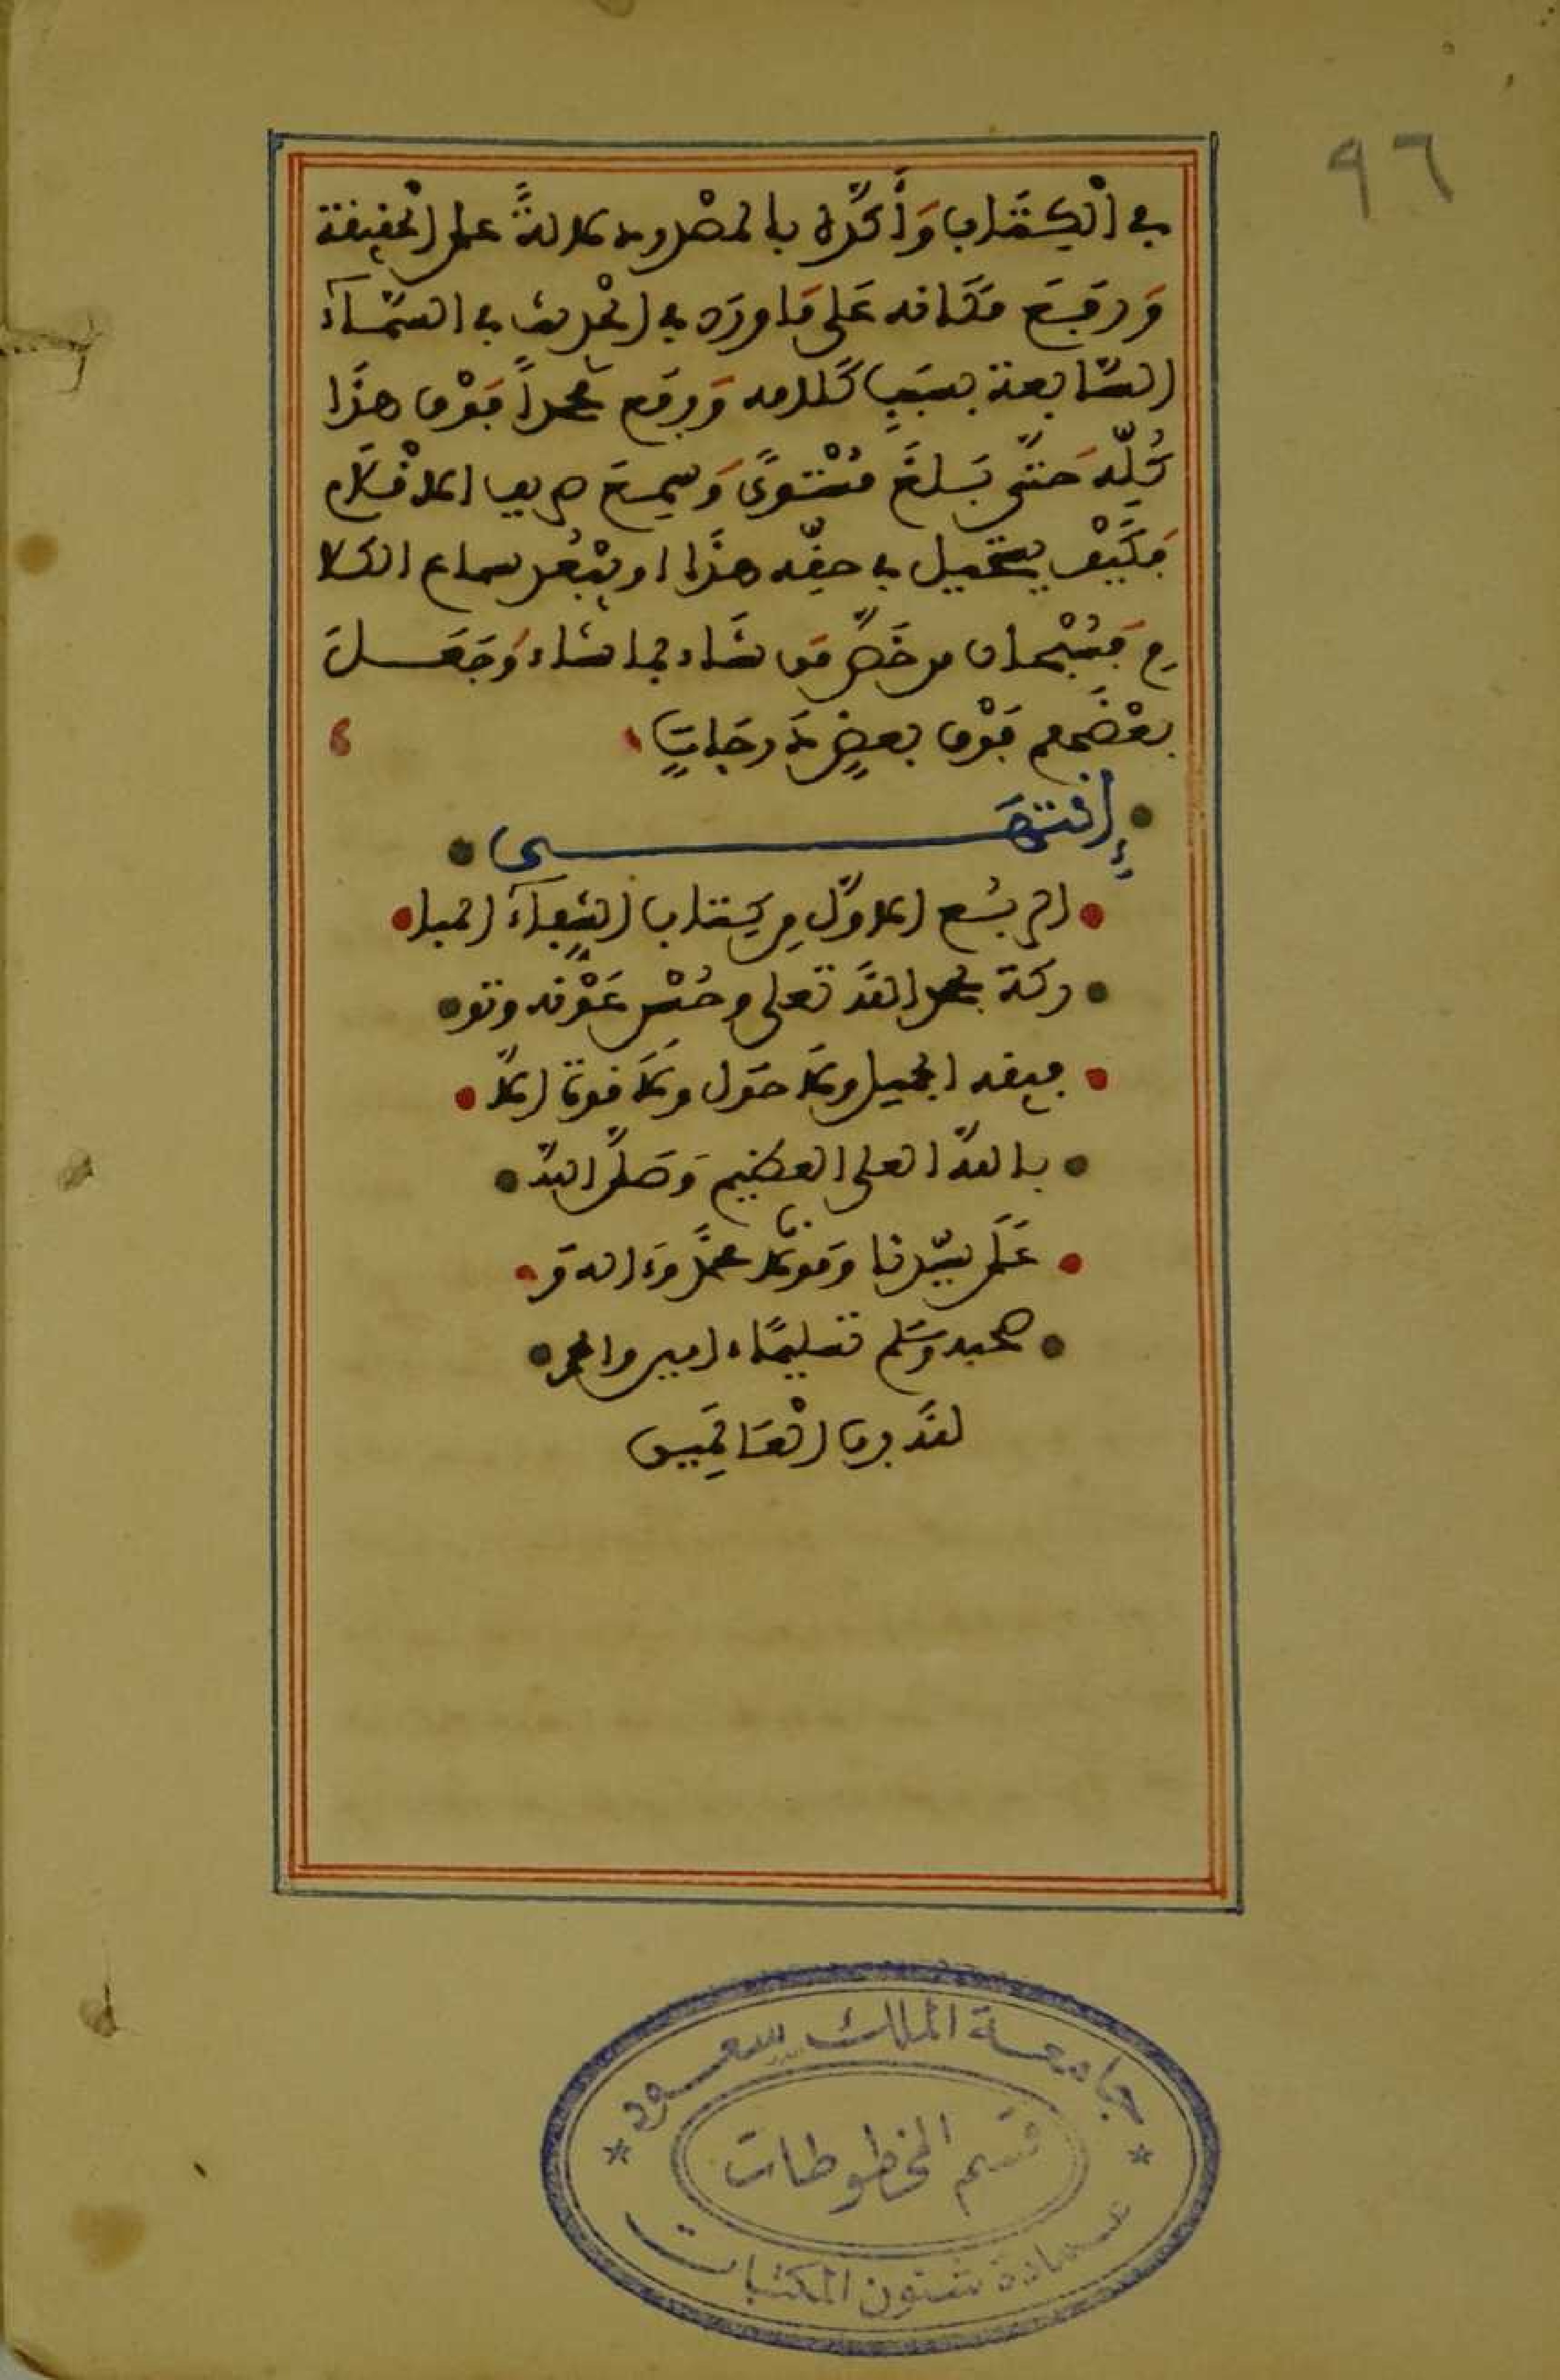 ٩٦
في الْكِتَاب وَأَكَّدَهُ بالمصْدر دلالةً على الحقيقة
وَرَفَعَ مَكَانه عَلى مَا ورَدَ في الحديث في السَّمَآءِ
السَّابعة بسَبَبِ كَلامه وَرفع محمداً فَوْق هذَا
كُلِّه حَتَّى بَلغَ مُسْتَوىً وَسمِعَ صريف الاقْلَام
فكَيْف يستحيل في حقِّه هذَا او يبْعُد سماع الكلا
مِ فَسُبْحان من خَصَّ مَن شَاء بما شاء وَجَعَل
بعْضَهم فَوْق بعضٍ دَرجَاتٍ
إِنتهَى
الربُع الاوَّل مِن كِتاب الشِّفآء المبا
ركة بحمد اللّه تعلى وحُسْن عَوْنه وتو
فيقه الجميل ولَا حَول ولَا قوة الَّا
باللّه العلى العظيم وَصَلَّى اللّه
عَلَى سيّدنا وَمولَانا محمَّد وءاله وَ
صحبه وَسَلم تسليمًا ءامين والحمد
للَّه رب الْعَالَمِين
جامعة الملك سعود
قسم المخطوطات
عمادة شئون المكتبات